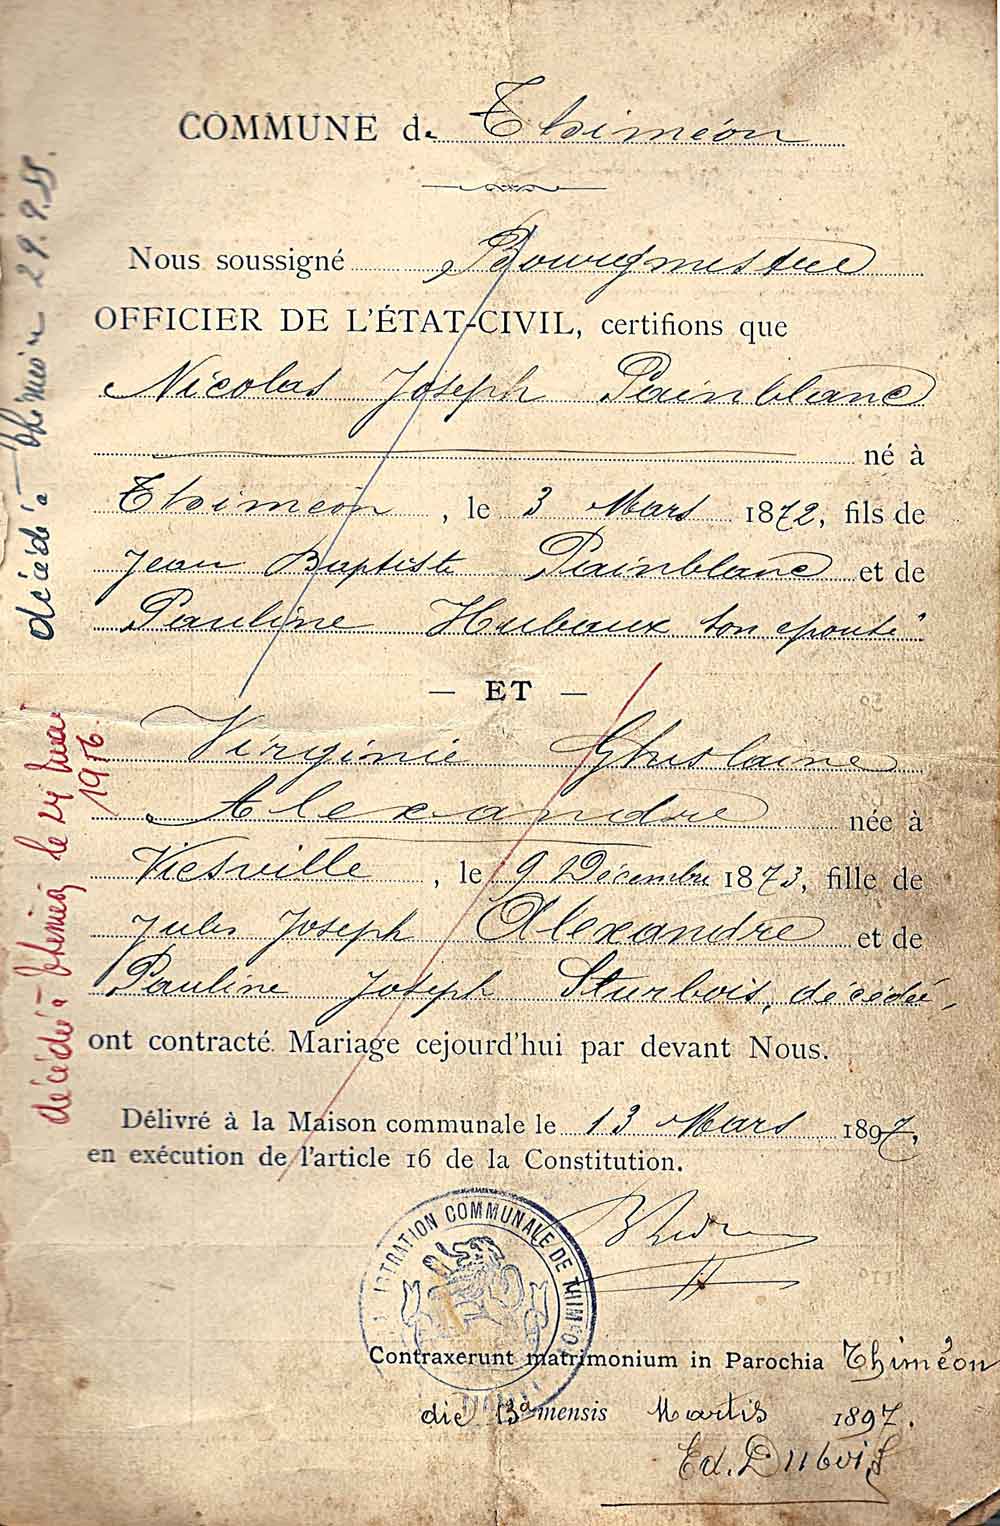 COMMUNE de Thiméon
Nous soussigné Bourgmestre
OFFICIER DE L'ÉTAT-CIVIL, certifions que
Nicolas Joseph Painblanc
né à
Thiméon, le 3 Mars 1872, fils de
Jean Baptiste Painblanc et de
Pauline Hubaux son épouse
— ET —
Virginie Ghislaine
Alexandre née à
Viesville, le 9 Décembre 1873, fille de
Jules Joseph Alexandre et de
Pauline Joseph Sturbois, décédée,
ont contracté Mariage cejourd'hui par devant Nous.
Délivré à la Maison communale le 13 Mars 1897,
en exécution de l'article 16 de la Constitution.
ISTRATION COMMUNALE DE THIMÉO
Contraxerunt matrimonium in Parochia Thiméon
die 13a mensis Martis 1897.
Ed. Dubois
décédé à Thiméon 29.9.55.
décédée à Thiméon le 24 mai
1956.